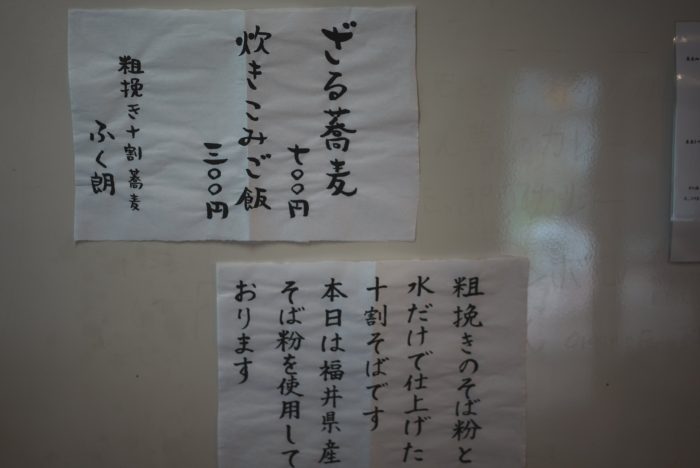 ざる蕎麦
七〇〇円
炊きこみご飯
三〇〇円
粗挽き十割蕎麦
ふく朗
粗挽きのそば粉と
水だけで仕上げた
十割そばです
本日は福井県産
そば粉を使用して
おります